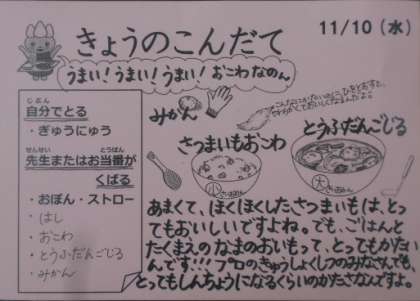 きょうのこんだて
11/10(水)
うまい!うまい!うまい!おこわなのん
じぶん
自分でとる
・ぎゅうにゅう
せんせい とうばん
先生またはお当番が
くばる
・おぼん・ストロー
・はし
・おこわ
・とうふだんごじる
・みかん
みかん
さつまいもおこわ
小さいおわん
とうふだんごじる
大きいおわん
あまくて、ほくほくしたさつまいもは、とっ
てもおいしいですよね。でも、ごはんと
たくまえのなまのおいもって、とってもかたい
んです!!!プロのきゅうしょくしつのみなさんでも、
とってもしんちょうになるくらいのかたさなんですよ。